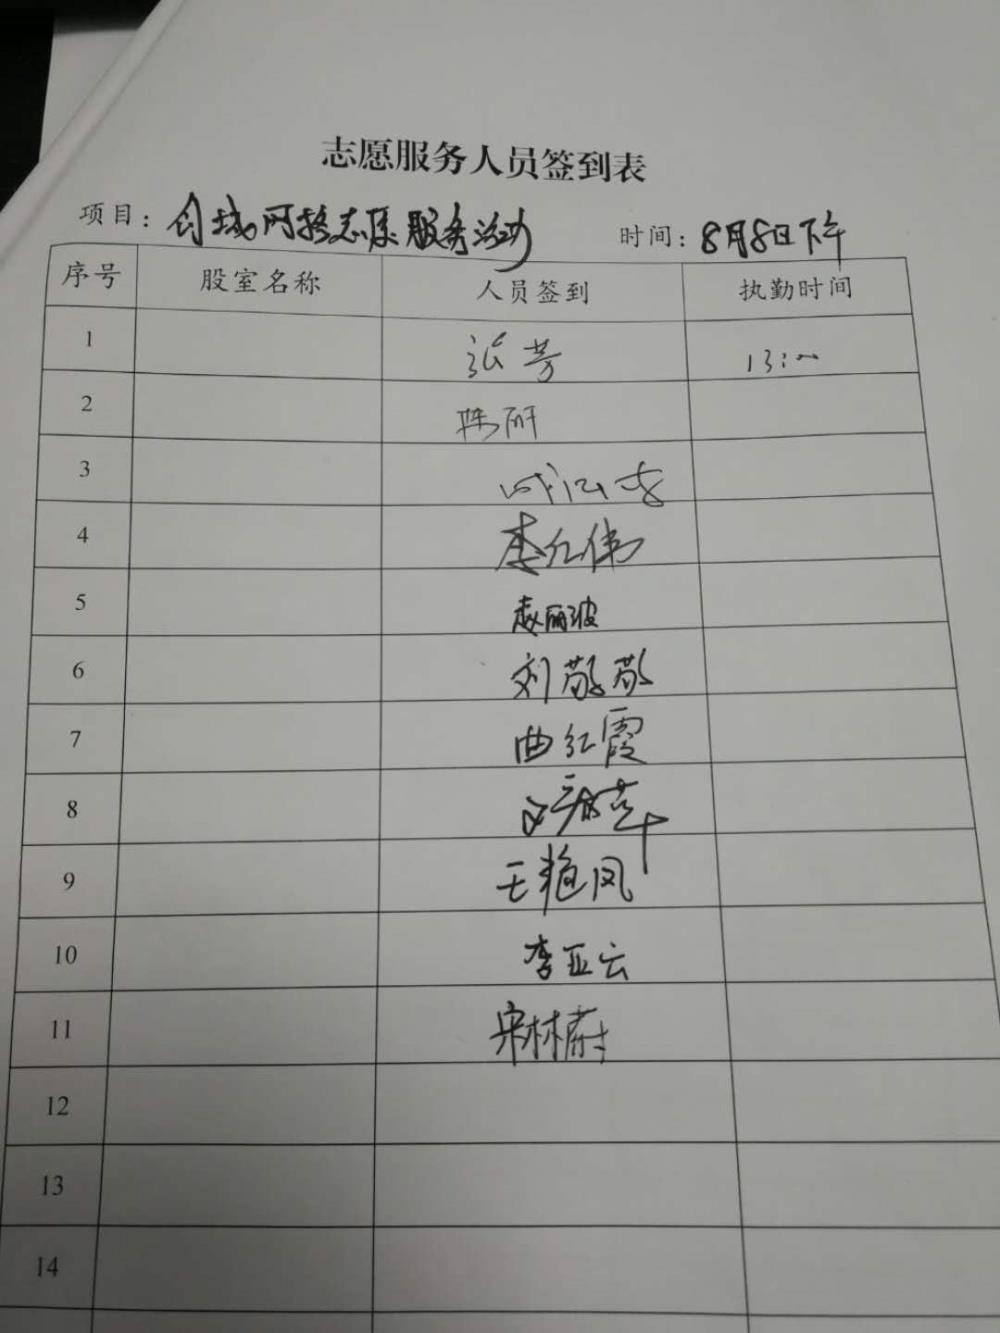 志愿服务人员签到表
项目：创城网格志愿服务活动 时间：8月8日下午
序号 股室名称 人员签到 执勤时间
1 张芳 13:00
2 陈研
3
4 李红伟
5 赵丽波
6 刘敬敬
7 曲红霞
8
9 王艳凤
10 李亚云
11 宋林蔚
12
13
14